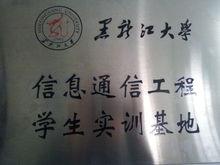 黑龙江大学
信息通信工程
学生实训基地